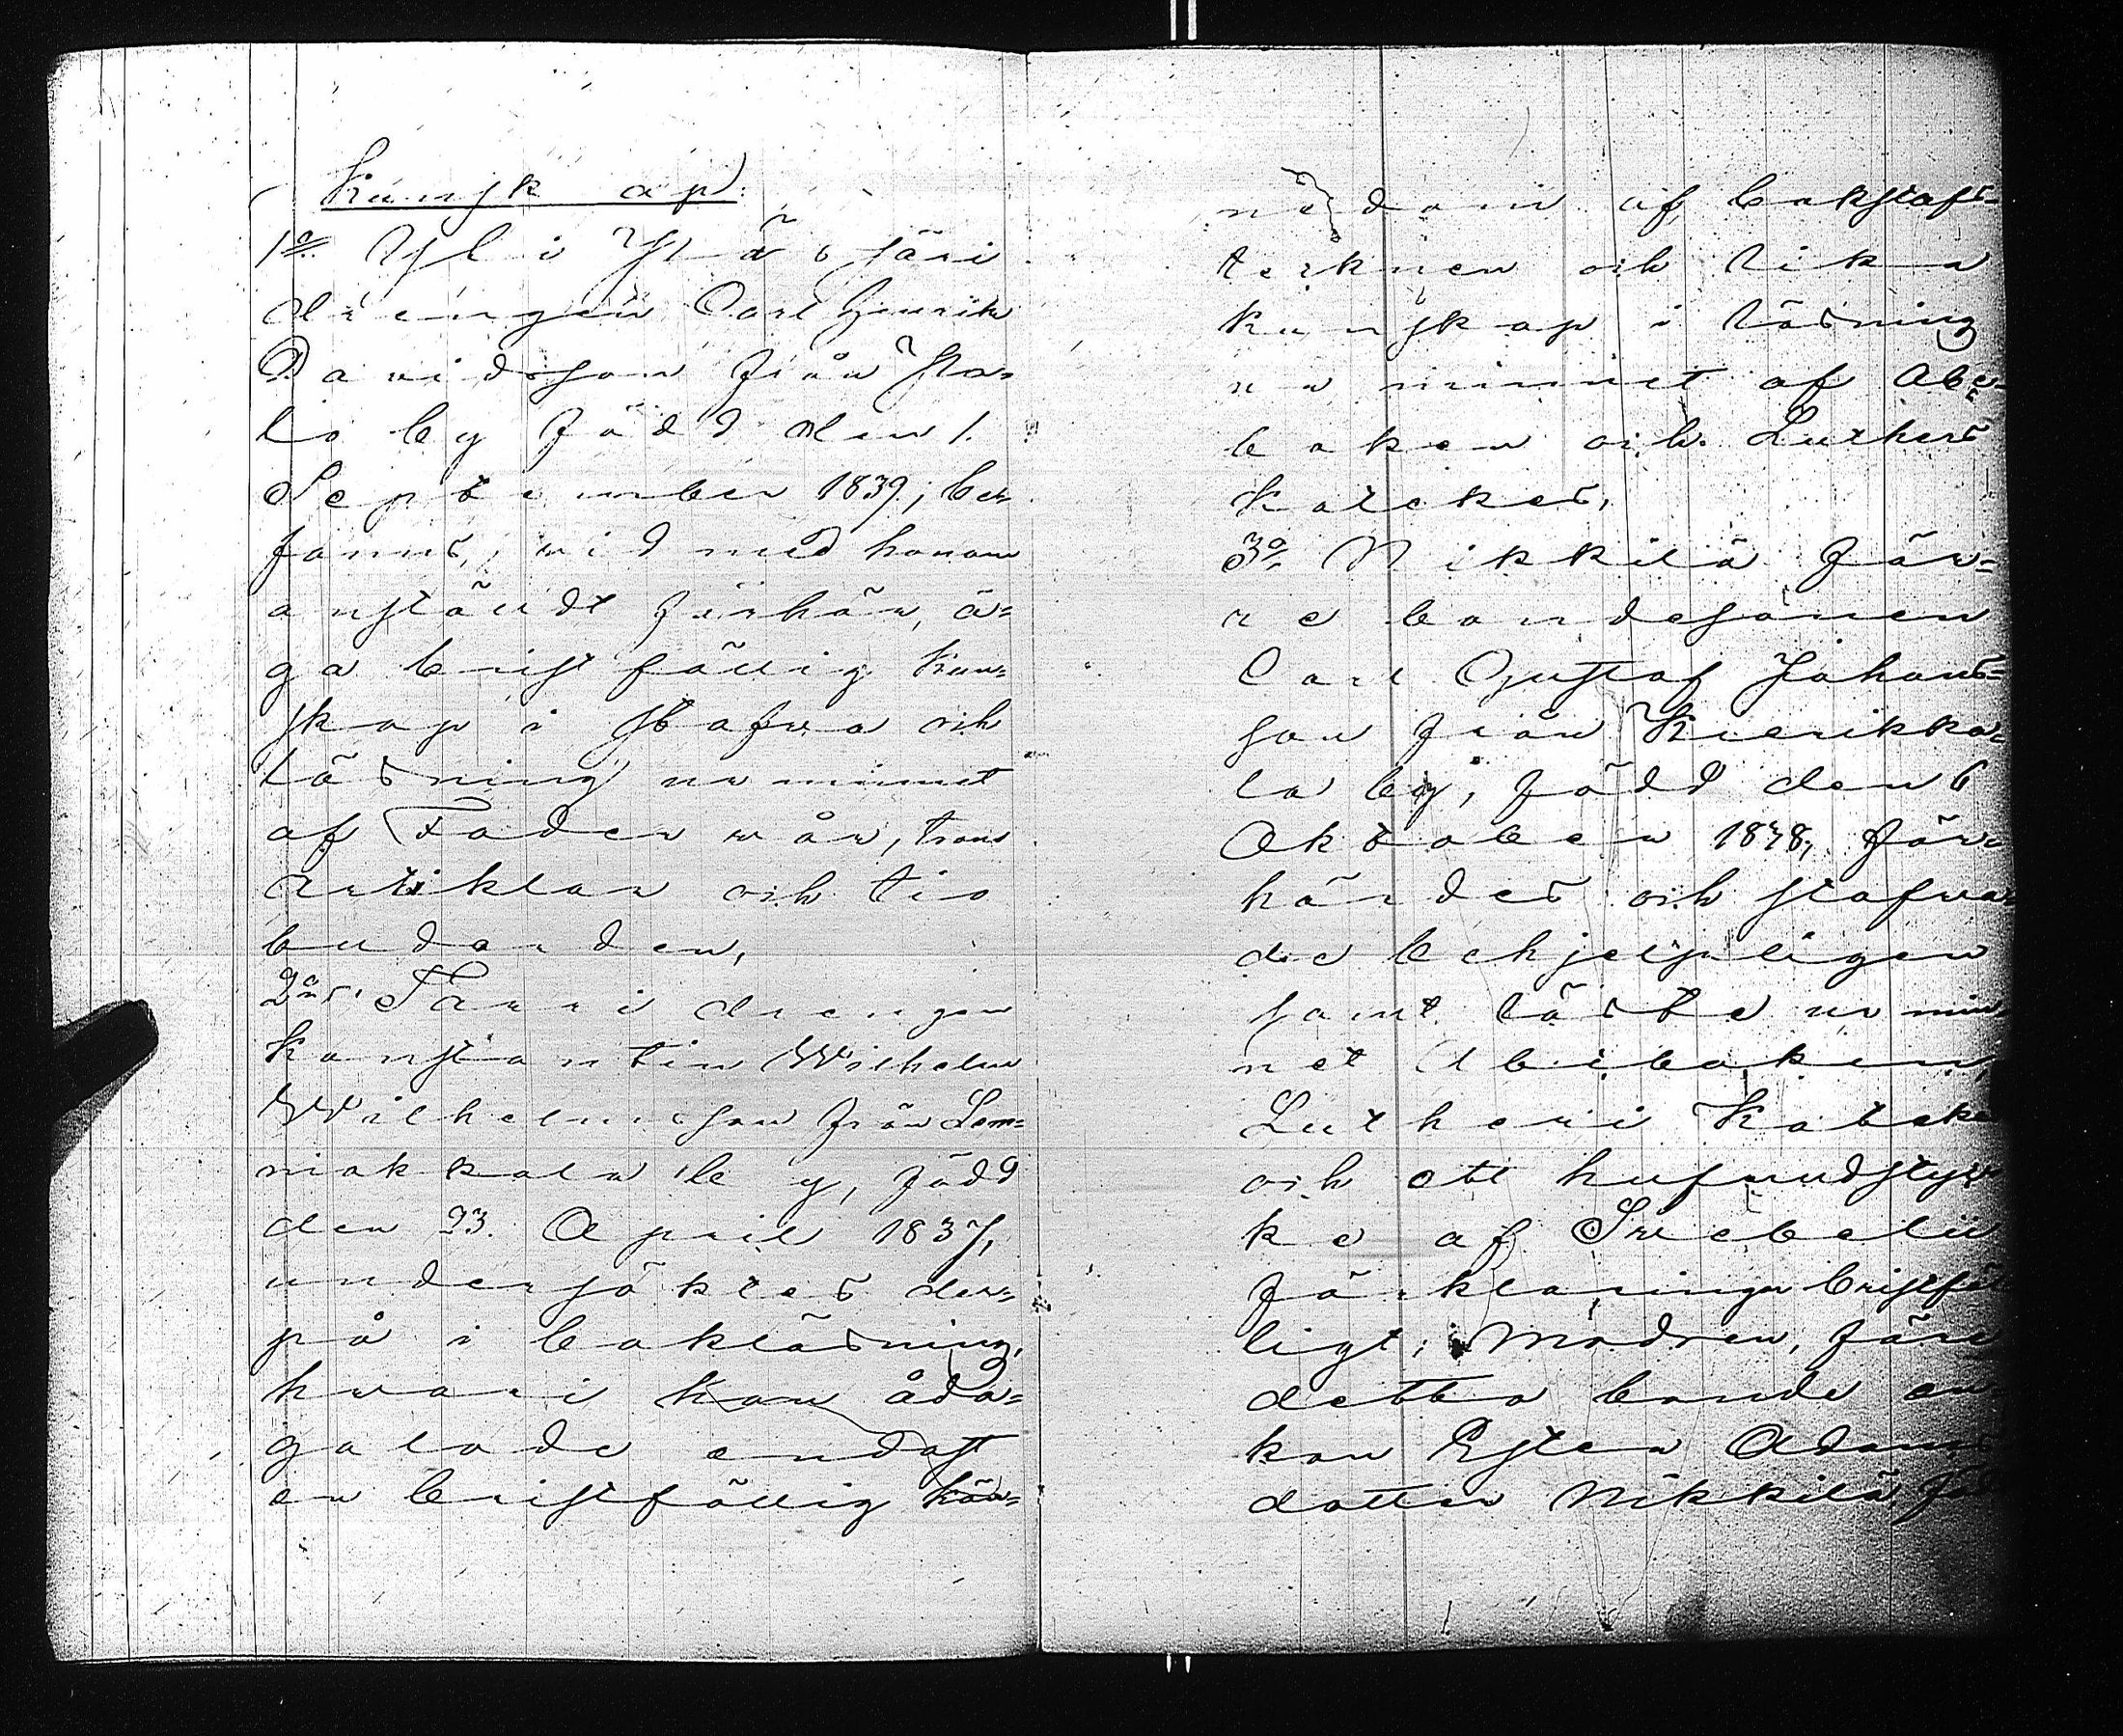 Kunskap:
1o Yli Ylösjäri
drengen Carl Henrik
Davidsson från Sta-
lo by född den 1.
September 1839; be-
fanns, vid med honom
anstäldt förhör, ä-
ga bristfällig kun-
skap i stafva och
läsning ur minnet
af Fader vår, trons
artiklar och tio
budorden,
2o Tarri drengen
Konstantin Wilhelm
Wilhelmsson från Lem-
miakkala by, född
den 23. April 1837,
undersöktes der-
på i bokläsning,
hvari han åda-
galade endast
en bristfällig kän-
nedom af bokstafs-
tecknen och lika
kunskap i läsning
ur minnet af Abe-
boken och Luthers
Kateches,
3o Nikkilä för-
re bondesonen
Carl Gustaf Johans-
son från Kierikka-
la by, född den 6
Oktober 1838, för-
hördes och stafva-
de behjelpligen
samt läste ur min-
net Abeboken,
Lutheri Kateke
och ett hufvudstyc-
ke af Svebelii
förklaringar bristfäl-
ligt; Modren, före
detta bonde en-
kan Ester Adams
dotter Nikkilä, föd